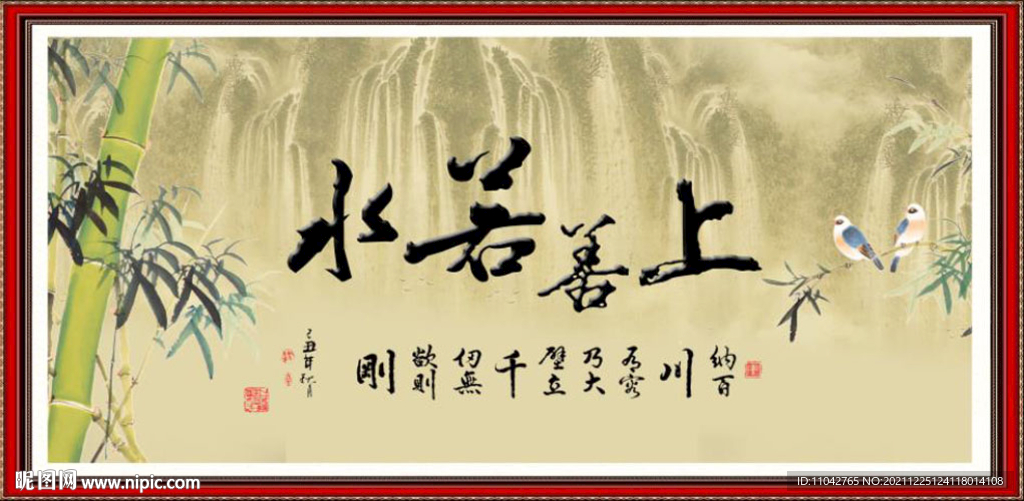 上善若水
納百
川
有容
乃大
壁立
千
仞無
欲則
剛
己丑年秋月
昵图网 www.nipic.com
ID:11042765 NO:20211225124118014108